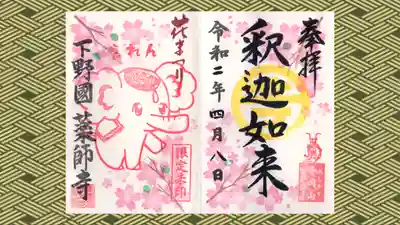 奉拝
釈迦如来
令和二年四月八日
花まつり
限定朱印
下野國薬師寺